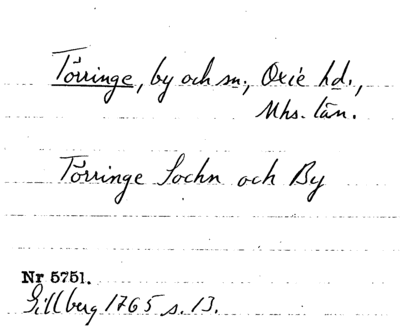 Törringe, by och sn:, Oxie hd.,
Mhs. län.
Törringe Sochn och By
Nr 5751.
Gillberg 1765 s. 13.